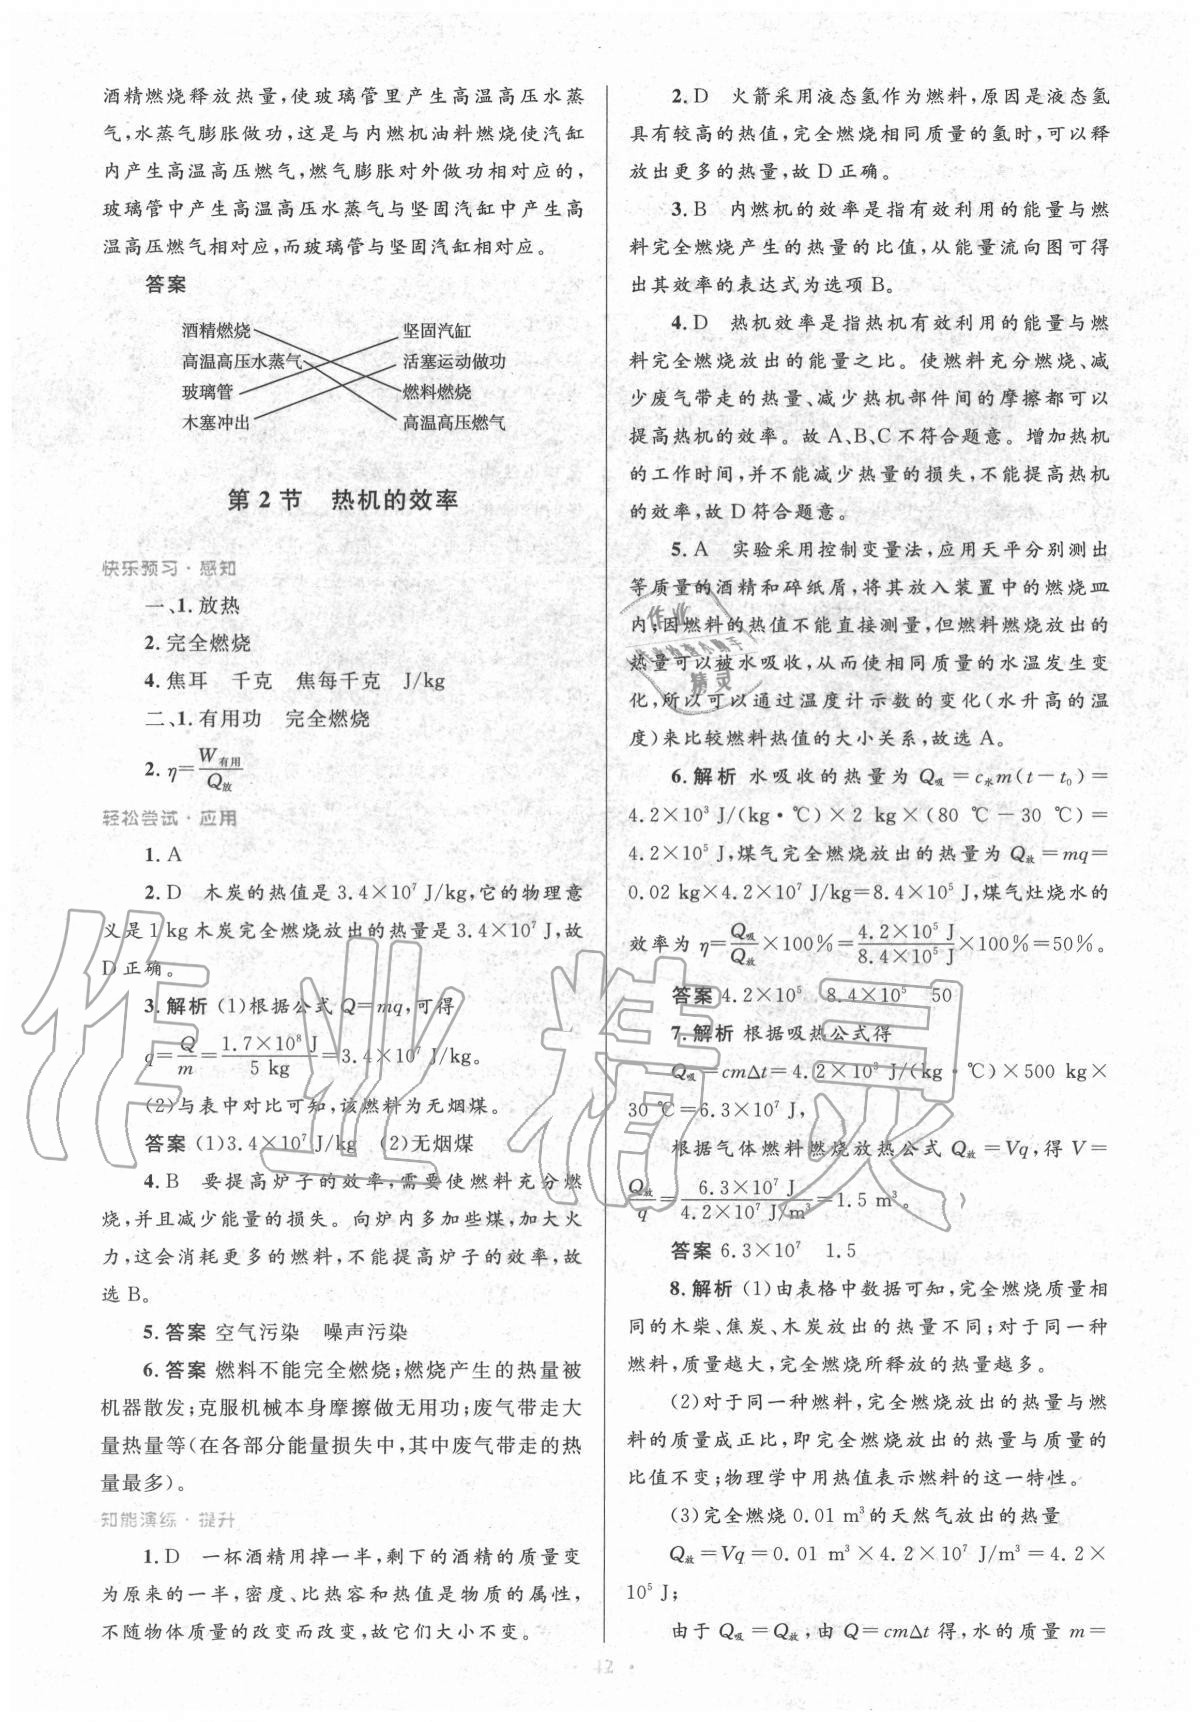 酒精燃烧释放热量,使玻璃管里产生高温高压水蒸
气,水蒸气膨胀做功,这是与内燃机油料燃烧使汽缸
内产生高温高压燃气,燃气膨胀对外做功相对应的,
玻璃管中产生高温高压水蒸气与坚固汽缸中产生高
温高压燃气相对应,而玻璃管与坚固汽缸相对应。
答案
酒精燃烧 坚固汽缸
高温高压水蒸气 活塞运动做功
玻璃管 燃料燃烧
木塞冲出 高温高压燃气
第2节 热机的效率
快乐预习·感知
一、1.放热
2.完全燃烧
4.焦耳 千克 焦每千克 J/kg
二、1.有用功 完全燃烧
2. η=W有用/Q放
轻松尝试·应用
1. A
2. D 木炭的热值是3.4×10⁷ J/kg,它的物理意
义是1 kg木炭完全燃烧放出的热量是3.4×10⁷ J,故
D正确。
3. 解析 (1)根据公式Q=mq,可得
q=Q/m=1.7×10⁸ J/5 kg=3.4×10⁷ J/kg。
(2)与表中对比可知,该燃料为无烟煤。
答案 (1)3.4×10⁷ J/kg (2)无烟煤
4. B 要提高炉子的效率,需要使燃料充分燃
烧,并且减少能量的损失。向炉内多加些煤,加大火
力,这会消耗更多的燃料,不能提高炉子的效率,故
选B。
5. 答案 空气污染 噪声污染
6. 答案 燃料不能完全燃烧;燃烧产生的热量被
机器散发;克服机械本身摩擦做无用功;废气带走大
量热量等(在各部分能量损失中,其中废气带走的热
量最多)。
知能演练·提升
1. D 一杯酒精用掉一半,剩下的酒精的质量变
为原来的一半,密度、比热容和热值是物质的属性,
不随物体质量的改变而改变,故它们大小不变。
2. D 火箭采用液态氢作为燃料,原因是液态氢
具有较高的热值,完全燃烧相同质量的氢时,可以释
放出更多的热量,故D正确。
3. B 内燃机的效率是指有效利用的能量与燃
料完全燃烧产生的热量的比值,从能量流向图可得
出其效率的表达式为选项B。
4. D 热机效率是指热机有效利用的能量与燃
料完全燃烧放出的能量之比。使燃料充分燃烧、减
少废气带走的热量、减少热机部件间的摩擦都可以
提高热机的效率。故A、B、C不符合题意。增加热机
的工作时间,并不能减少热量的损失,不能提高热机
的效率,故D符合题意。
5. A 实验采用控制变量法,应用天平分别测出
等质量的酒精和碎纸屑,将其放入装置中的燃烧皿
内;因燃料的热值不能直接测量,但燃料燃烧放出的
热量可以被水吸收,从而使相同质量的水温发生变
化,所以可以通过温度计示数的变化(水升高的温
度)来比较燃料热值的大小关系,故选A。
6. 解析 水吸收的热量为Q吸=c水m(t-t₀)=
4.2×10³ J/(kg·℃)×2 kg×(80 ℃-30 ℃)=
4.2×10⁵ J,煤气完全燃烧放出的热量为Q放=mq=
0.02 kg×4.2×10⁷ J/kg=8.4×10⁵ J,煤气灶烧水的
效率为 η=Q吸/Q放×100%=4.2×10⁵ J/8.4×10⁵ J×100%=50%。
答案 4.2×10⁵ 8.4×10⁵ 50
7. 解析 根据吸热公式得
Q吸=cmΔt=4.2×10³ J/(kg·℃)×500 kg×
30 ℃=6.3×10⁷ J,
根据气体燃料燃烧放热公式Q放=Vq,得V=
Q放/q=6.3×10⁷ J/4.2×10⁷ J/m³=1.5 m³。
答案 6.3×10⁷ 1.5
8. 解析 (1)由表格中数据可知,完全燃烧质量相
同的木柴、焦炭、木炭放出的热量不同;对于同一种
燃料,质量越大,完全燃烧所释放的热量越多。
(2)对于同一种燃料,完全燃烧放出的热量与燃
料的质量成正比,即完全燃烧放出的热量与质量的
比值不变;物理学中用热值表示燃料的这一特性。
(3)完全燃烧0.01 m³的天然气放出的热量
Q放=Vq=0.01 m³×4.2×10⁷ J/m³=4.2×
10⁵ J;
由于Q吸=Q放,由Q=cmΔt得,水的质量m=
12
作业精灵
作业
精灵